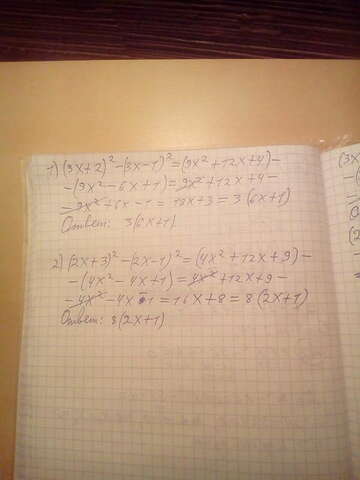 1) (3x+2)²-(3x-1)²=(9x²+12x+4)-
-(9x²-6x+1)=9x²+12x+4-
-9x²+6x-1=18x+3=3(6x+1)
Ответ: 3(6x+1)
2) (2x+3)²-(2x-1)²=(4x²+12x+9)-
-(4x²-4x+1)=4x²+12x+9-
-4x²-4x-1=16x+8=8(2x+1)
Ответ: 8(2x+1)
(3x